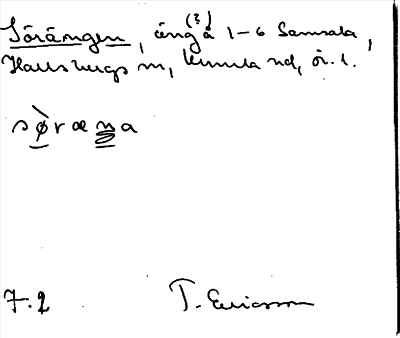 (?)
Sörängen, äng å 1-6 Samsala,
Hallsbergs sn, Kumla hd, ör. l.
sø̀ræŋa
7.2 T. Ericsson